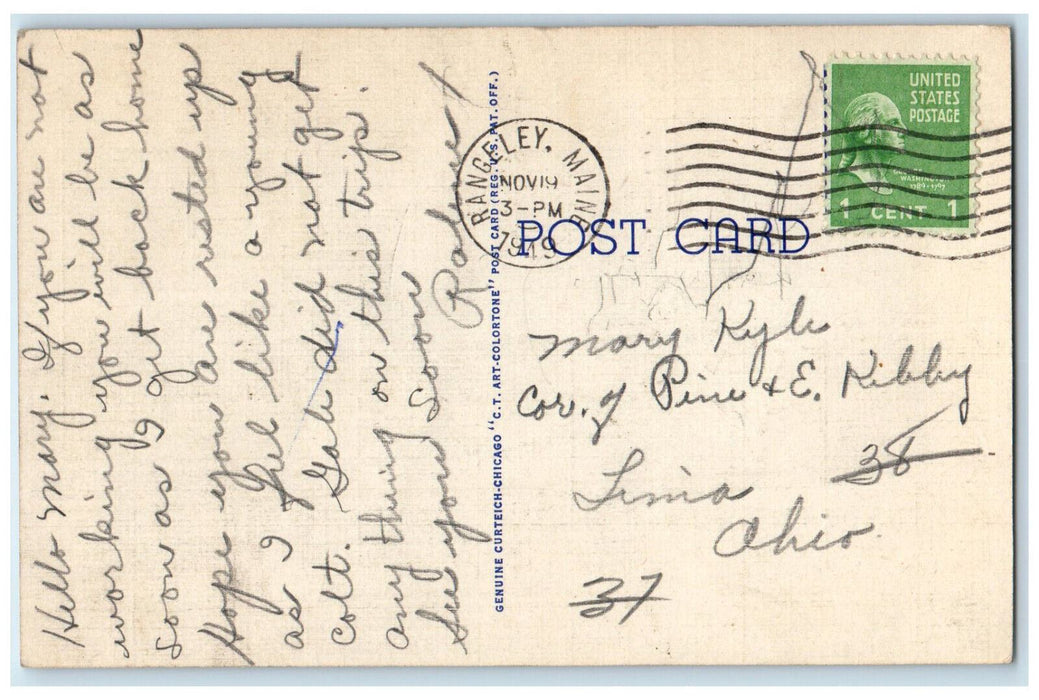 Hello Mary. If you are not
working you will be as
soon as I get back home
Hope you are rested up
as I feel like a young
colt. Gale did not get
any thing on this trip.
See you soon
Robert
GENUINE CURTEICH-CHICAGO "C.T. ART-COLORTONE" POST CARD (REG. U.S. PAT. OFF.)
RANGELEY, MAINE
NOV 19
3-PM
1949
UNITED
STATES
POSTAGE
WASHINGTON
1789-1797
1 CENT 1
POST CARD
Mary Kyle
Cor. of Pine & E. Kibby
38
Lima
Ohio.
37